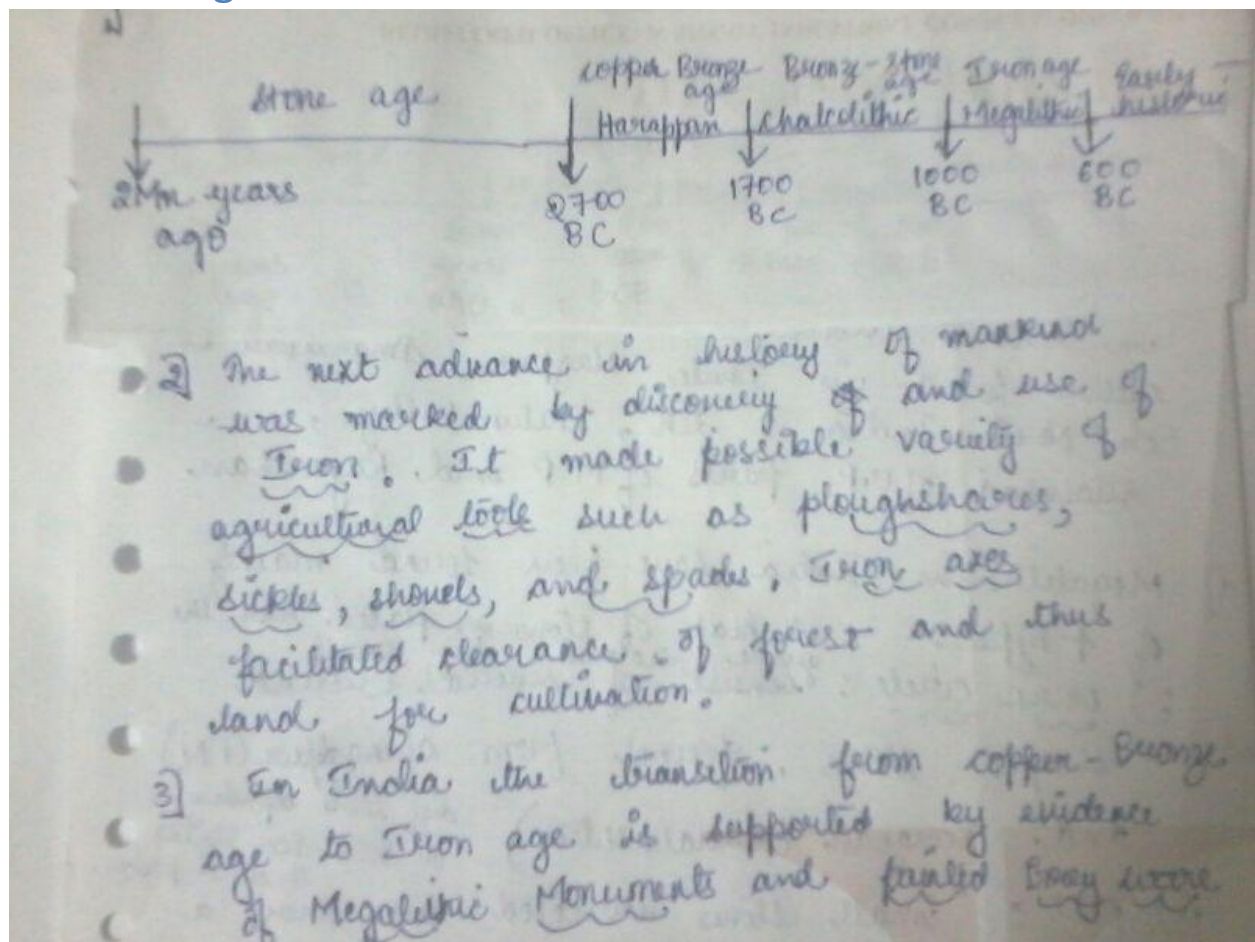 copper Bronze Bronze-stone Iron age Early
Stone age age age historic
Harappan Chalcolithic Megalithic
2Mn years 2700 1700 1000 600
ago BC BC BC BC
2] The next advance in history of mankind
was marked by discovery and use of
Iron. It made possible variety of
agricultural tools such as ploughshares,
sickles, shovels, and spades. Iron axes
facilitated clearance of forest and thus
land for cultivation.
3] In India the transition from copper-Bronze
age to Iron age is supported by evidence
of Megalithic Monuments and painted Grey ware